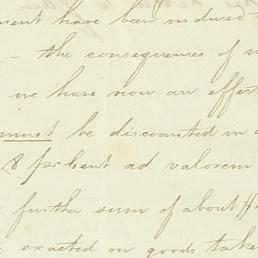 ment have been induced
- the consequences of
we have now an effect
must be discounted in
8 pr cent ad. valorem
further sum of about
exacted on goods take